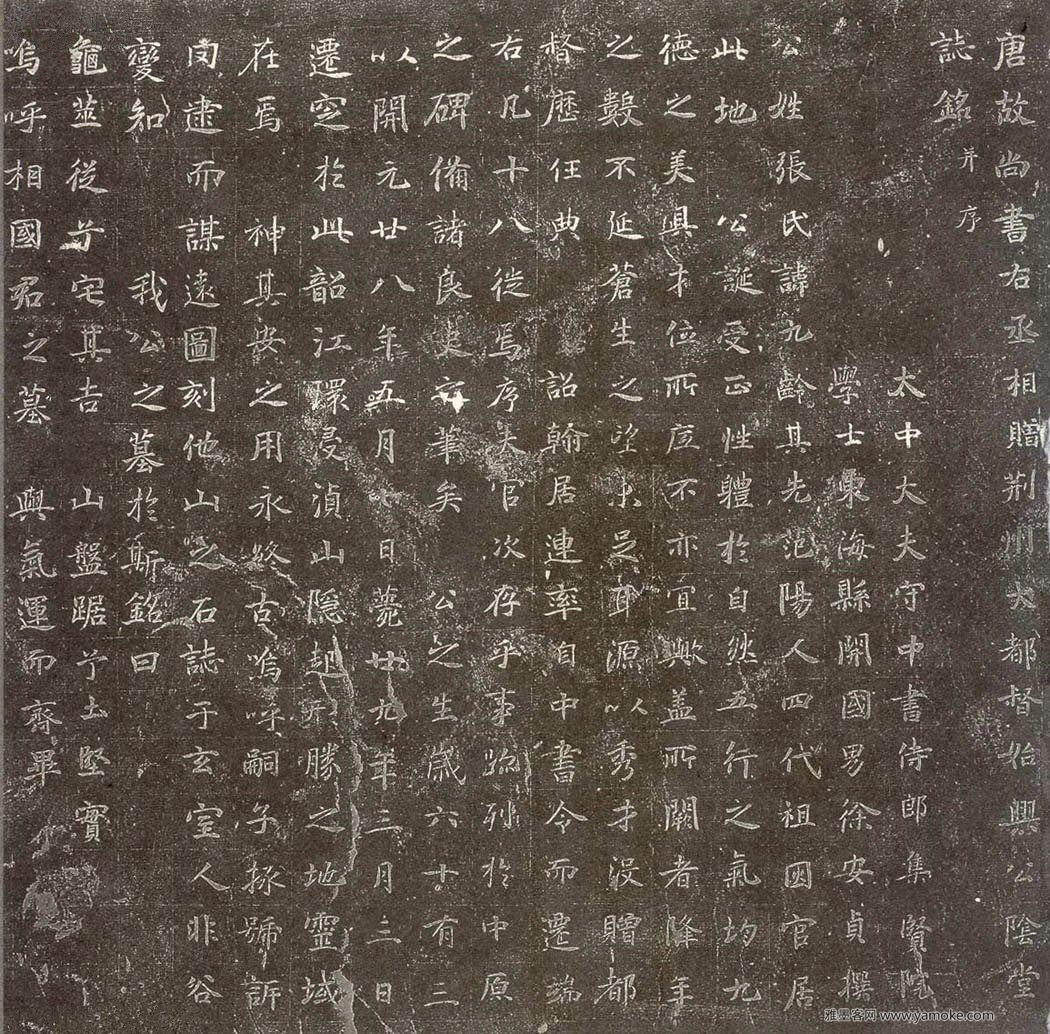 唐故尚書右丞相贈荆州大都督始興公陰堂
誌銘并序
太中大夫守中書侍郎集賢院
學士東海縣開國男徐安貞撰
公姓張氏諱九齡其先范陽人四代祖因官居
此地公誕受正性體於自然五行之氣均九
德之美具才位所底不亦宜歟蓋所闕者降年
之數不延蒼生之望未足耳源以秀才沒贈都
督歷任典詔翰居連率自中書令而遷端
右凡十八徙焉序夫官次存乎事跡列於中原
之碑備諸良史安筆矣公之生歲六十有三
以開元廿八年五月七日薨廿九年三月三日
遷窆於此韶江環浸湞山隱起形勝之地靈域
在焉神其安之用永終古嗚呼嗣子拯號訴
罔逮而謀遠圖刻他山之石誌于玄室人非谷
變知我公之墓於斯銘曰
龜筮從兮宅其吉山盤踞兮土堅實
嗚呼相國君之墓與氣運而齊畢
雅墨客网 www.yamoke.com